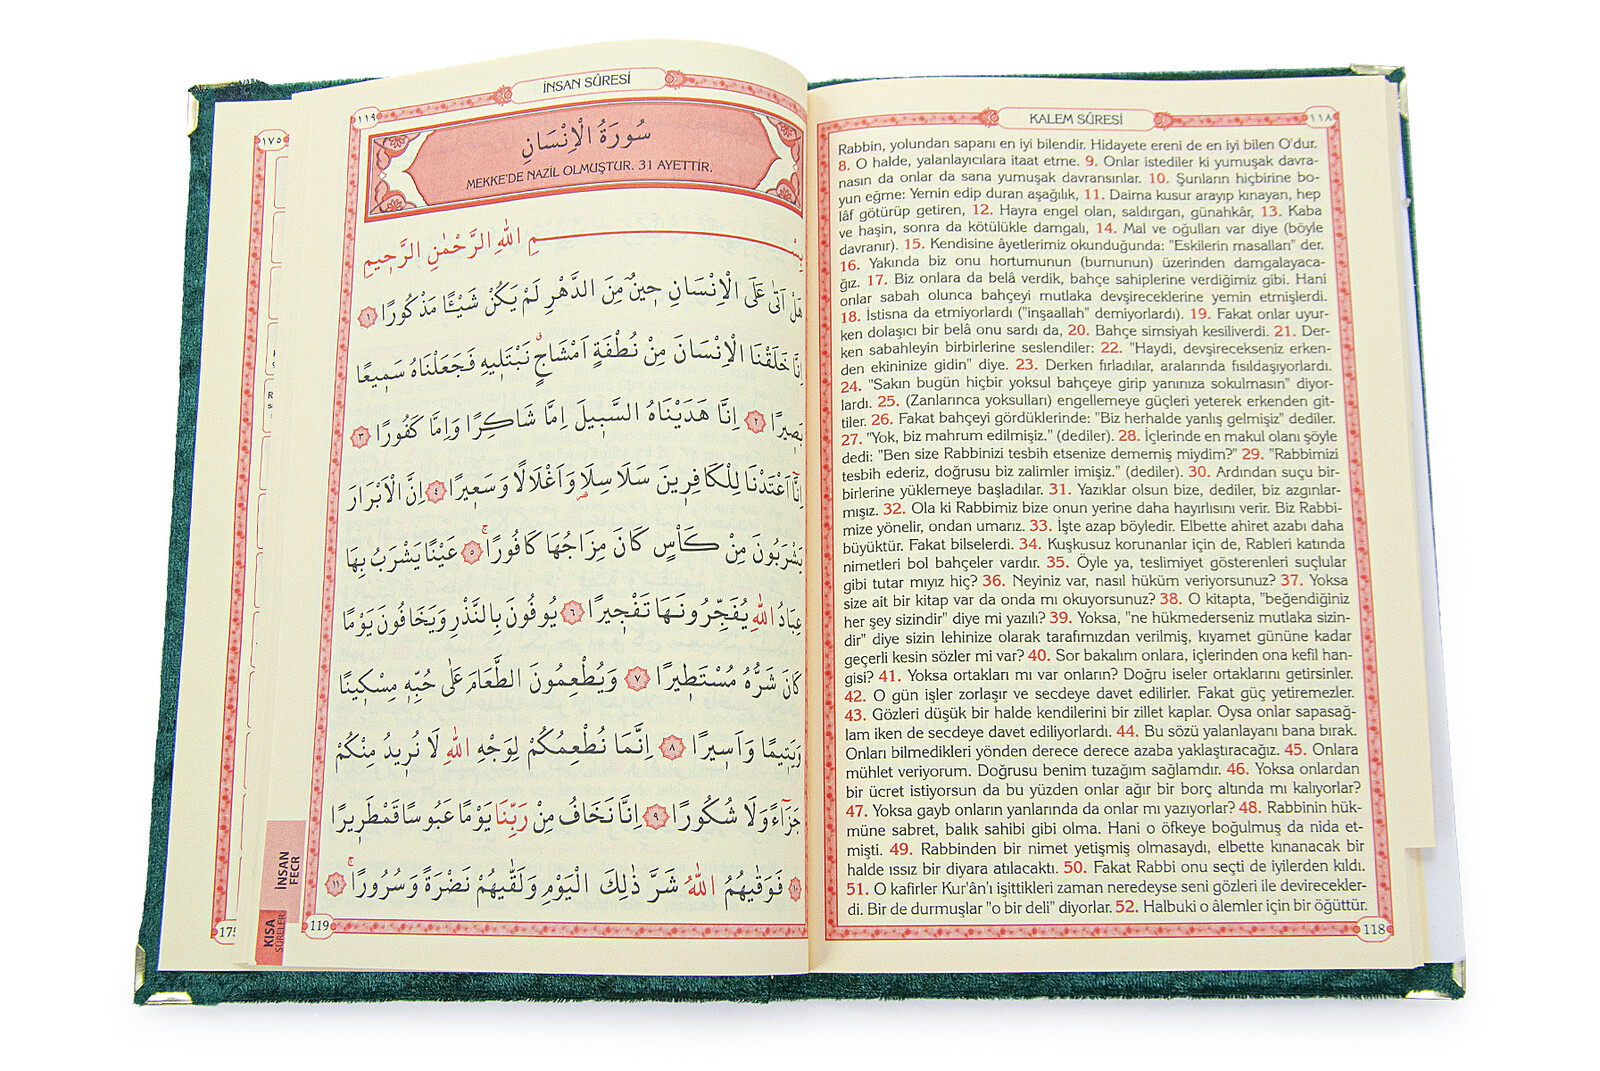 KALEM SÛRESİ
١١٨
Rabbin, yolundan sapanı en iyi bilendir. Hidayete ereni de en iyi bilen O'dur.
8. O halde, yalanlayıcılara itaat etme. 9. Onlar istediler ki yumuşak davra-
nasın da onlar da sana yumuşak davransınlar. 10. Şunların hiçbirine bo-
yun eğme: Yemin edip duran aşağılık, 11. Daima kusur arayıp kınayan, hep
lâf götürüp getiren, 12. Hayra engel olan, saldırgan, günahkâr, 13. Kaba
ve haşin, sonra da kötülükle damgalı, 14. Mal ve oğulları var diye (böyle
davranır). 15. Kendisine âyetlerimiz okunduğunda: "Eskilerin masalları" der.
16. Yakında biz onu hortumunun (burnunun) üzerinden damgalayaca-
ğız. 17. Biz onlara da belâ verdik, bahçe sahiplerine verdiğimiz gibi. Hani
onlar sabah olunca bahçeyi mutlaka devşireceklerine yemin etmişlerdi.
18. İstisna da etmiyorlardı ("inşaallah" demiyorlardı). 19. Fakat onlar uyur-
ken dolaşıcı bir belâ onu sardı da, 20. Bahçe simsiyah kesiliverdi. 21. Der-
ken sabahleyin birbirlerine seslendiler: 22. "Haydi, devşirecekseniz erken-
den ekininize gidin" diye. 23. Derken fırladılar, aralarında fısıldaşıyorlardı.
24. "Sakın bugün hiçbir yoksul bahçeye girip yanınıza sokulmasın" diyor-
lardı. 25. (Zanlarınca yoksulları) engellemeye güçleri yeterek erkenden git-
tiler. 26. Fakat bahçeyi gördüklerinde: "Biz herhalde yanlış gelmişiz" dediler.
27. "Yok, biz mahrum edilmişiz." (dediler). 28. İçlerinde en makul olanı şöyle
dedi: "Ben size Rabbinizi tesbih etsenize dememiş miydim?" 29. "Rabbimizi
tesbih ederiz, doğrusu biz zalimler imişiz." (dediler). 30. Ardından suçu bir-
birlerine yüklemeye başladılar. 31. Yazıklar olsun bize, dediler, biz azgınlar-
mışız. 32. Ola ki Rabbimiz bize onun yerine daha hayırlısını verir. Biz Rabbi-
mize yönelir, ondan umarız. 33. İşte azap böyledir. Elbette ahiret azabı daha
büyüktür. Fakat bilselerdi. 34. Kuşkusuz korunanlar için de, Rableri katında
nimetleri bol bahçeler vardır. 35. Öyle ya, teslimiyet gösterenleri suçlular
gibi tutar mıyız hiç? 36. Neyiniz var, nasıl hüküm veriyorsunuz? 37. Yoksa
size ait bir kitap var da onda mı okuyorsunuz? 38. O kitapta, "beğendiğiniz
her şey sizindir" diye mi yazılı? 39. Yoksa, "ne hükmederseniz mutlaka sizin-
dir" diye sizin lehinize olarak tarafımızdan verilmiş, kıyamet gününe kadar
geçerli kesin sözler mi var? 40. Sor bakalım onlara, içlerinden ona kefil han-
gisi? 41. Yoksa ortakları mı var onların? Doğru iseler ortaklarını getirsinler.
42. O gün işler zorlaşır ve secdeye davet edilirler. Fakat güç yetiremezler.
43. Gözleri düşük bir halde kendilerini bir zillet kaplar. Oysa onlar sapasağ-
lam iken de secdeye davet ediliyorlardı. 44. Bu sözü yalanlayanı bana bırak.
Onları bilmedikleri yönden derece derece azaba yaklaştıracağız. 45. Onlara
mühlet veriyorum. Doğrusu benim tuzağım sağlamdır. 46. Yoksa onlardan
bir ücret istiyorsun da bu yüzden onlar ağır bir borç altında mı kalıyorlar?
47. Yoksa gayb onların yanlarında da onlar mı yazıyorlar? 48. Rabbinin hük-
müne sabret, balık sahibi gibi olma. Hani o öfkeye boğulmuş da nida et-
mişti. 49. Rabbinden bir nimet yetişmiş olmasaydı, elbette kınanacak bir
halde ıssız bir diyara atılacaktı. 50. Fakat Rabbi onu seçti de iyilerden kıldı.
51. O kafirler Kur'ân'ı işittikleri zaman neredeyse seni gözleri ile devirecekler-
di. Bir de durmuşlar "o bir deli" diyorlar. 52. Halbuki o âlemler için bir öğüttür.
118
İNSAN SÛRESİ
١١٩
سُورَةُ الْاِنْسَانِ
MEKKE'DE NAZİL OLMUŞTUR. 31 AYETTİR.
بِسْمِ اللهِ الرَّحْمٰنِ الرَّحِيمِ
هَلْ اَتٰى عَلَى الْاِنْسَانِ حِينٌ مِنَ الدَّهْرِ لَمْ يَكُنْ شَيْـًٔا مَذْكُورًا ١
اِنَّا خَلَقْنَا الْاِنْسَانَ مِنْ نُطْفَةٍ اَمْشَاجٍۗ نَبْتَلِيهِ فَجَعَلْنَاهُ سَمِيعًا
بَصِيرًا ٢ اِنَّا هَدَيْنَاهُ السَّبِيلَ اِمَّا شَاكِرًا وَاِمَّا كَفُورًا ٣
اِنَّٓا اَعْتَدْنَا لِلْكَافِرِينَ سَلَاسِلَا۬ وَاَغْلَالًا وَسَعِيرًا ٤ اِنَّ الْاَبْرَارَ
يَشْرَبُونَ مِنْ كَأْسٍ كَانَ مِزَاجُهَا كَافُورًاۚ ٥ عَيْنًا يَشْرَبُ بِهَا
عِبَادُ اللهِ يُفَجِّرُونَهَا تَفْجِيرًا ٦ يُوفُونَ بِالنَّذْرِ وَيَخَافُونَ يَوْمًا
كَانَ شَرُّهُ مُسْتَطِيرًا ٧ وَيُطْعِمُونَ الطَّعَامَ عَلٰى حُبِّهِ مِسْكِينًا
وَيَتِيمًا وَاَسِيرًا ٨ اِنَّمَا نُطْعِمُكُمْ لِوَجْهِ اللهِ لَا نُرِيدُ مِنْكُمْ
جَزَٓاءً وَلَا شُكُورًا ٩ اِنَّا نَخَافُ مِنْ رَبِّنَا يَوْمًا عَبُوسًا قَمْطَرِيرًا
١٠ فَوَقٰيهُمُ اللهُ شَرَّ ذٰلِكَ الْيَوْمِ وَلَقّٰيهُمْ نَضْرَةً وَسُرُورًاۚ ١١
119
İNSAN
FECR
KISA
SÛRELER
١٧٥
175